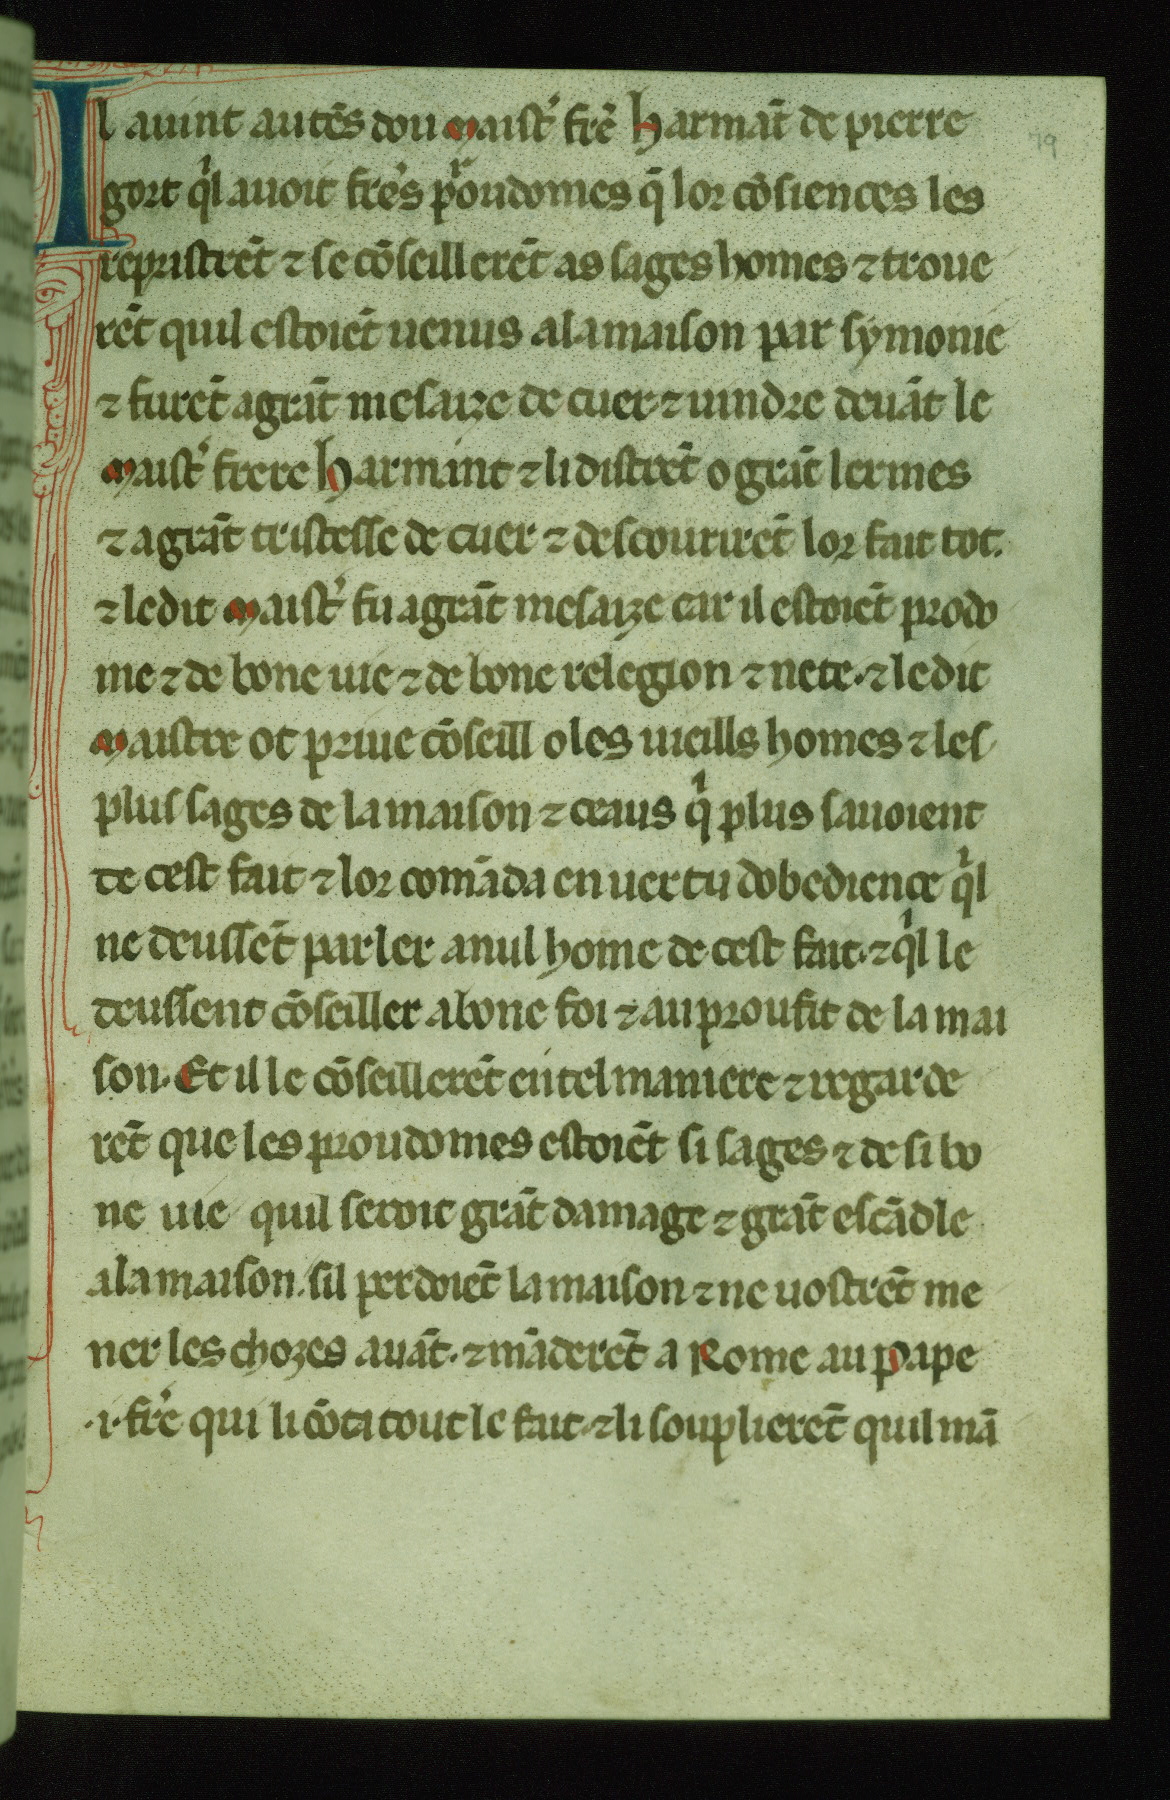 Il auint au tēs dou maist' frē harmāt de pierre
gort q'l auoit fre's proudomes q̄ lor cōsiences les
repristrēt ⁊ se cōseillerēt as sages homes ⁊ troue
rēt quil estoiēt uenus a la maison par symonie
⁊ furēt a grāt mesaize de cuer ⁊ uindre deuāt le
maist' frere harmant ⁊ li distrēt o grāt lermes
⁊ a grāt tristesse de cuer ⁊ descourirēt lor fait tot.
⁊ ledit maist' fu a grāt mesaize car il estoiēt prodo
me ⁊ de bone uie ⁊ de bone relegion ⁊ nete. ⁊ ledit
maistre ot priue cōseill o les uieills homes ⁊ les
plus sages de la maison ⁊ ceaus q' plus sauoient
de cest fait ⁊ lor comāda en uertu dobedience q'l
ne deussēt parler a nul home de cest fait. ⁊ q'l le
deussent cōseiller a bone foi ⁊ au proufit de la mai
son. Et il le cōseillerēt en tel maniere ⁊ regarde
rēt que les proudomes estoiēt si sages ⁊ de si bo
ne uie quil seroit grāt damage ⁊ grāt escādle
a la maison. sil perdoiēt la maison ⁊ ne uostrēt me
ner les chozes auāt. ⁊ māderēt a Rome au pape
.i. fre' qui li cōta tout le fait. ⁊ li souplierēt quil mā
79